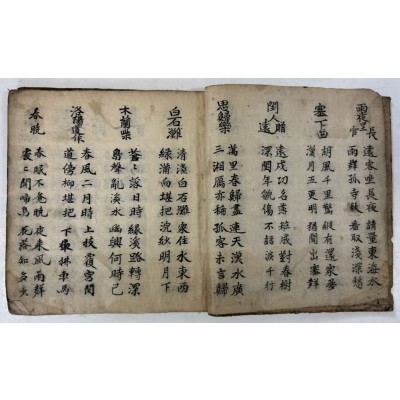 雨夜呈長官
遠客坐長夜 請量東海水
雨聲孤寺秋 看取淺深愁
塞下曲
胡風千里驚 縱有還家夢
漢月五更明 猶聞出塞聲
閨人贈遠
遠戍功名薄 粧成對春樹
深閨年貌傷 不語淚千行
思歸樂
萬里春歸盡 連天漢水廣
三湘鴈亦稀 孤客未言歸
白石灘
清淺白石灘 家住水東西
綠蒲向堪把 浣紗明月下
木蘭柴
蒼〻落日時 緣溪路轉深
鳥聲亂溪水 幽興何時已
洛陽道作
春風二月時 上枝覆宮閣
道傍柳堪把 下枝拂車馬
春曉
春眠不覺曉 夜來風雨聲
處〻聞啼鳥 花落知多少